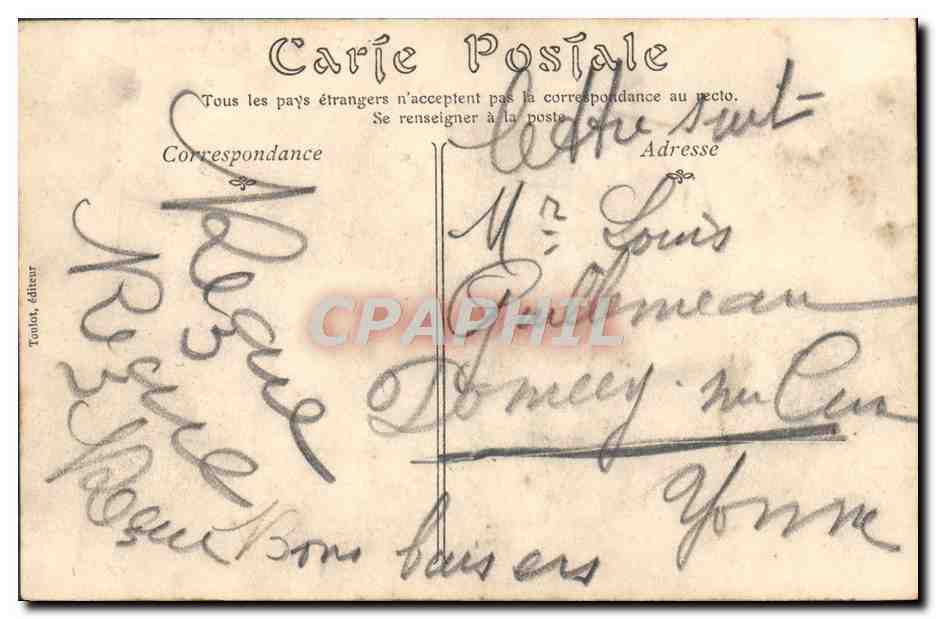 Carte Postale
Tous les pays étrangers n'acceptent pas la correspondance au recto.
Se renseigner à la poste
Correspondance
Adresse
lettre suit
Mr. Louis
Domecy sur Cure
Yonne
Bons baisers
Toulot, éditeur
CPAPHIL